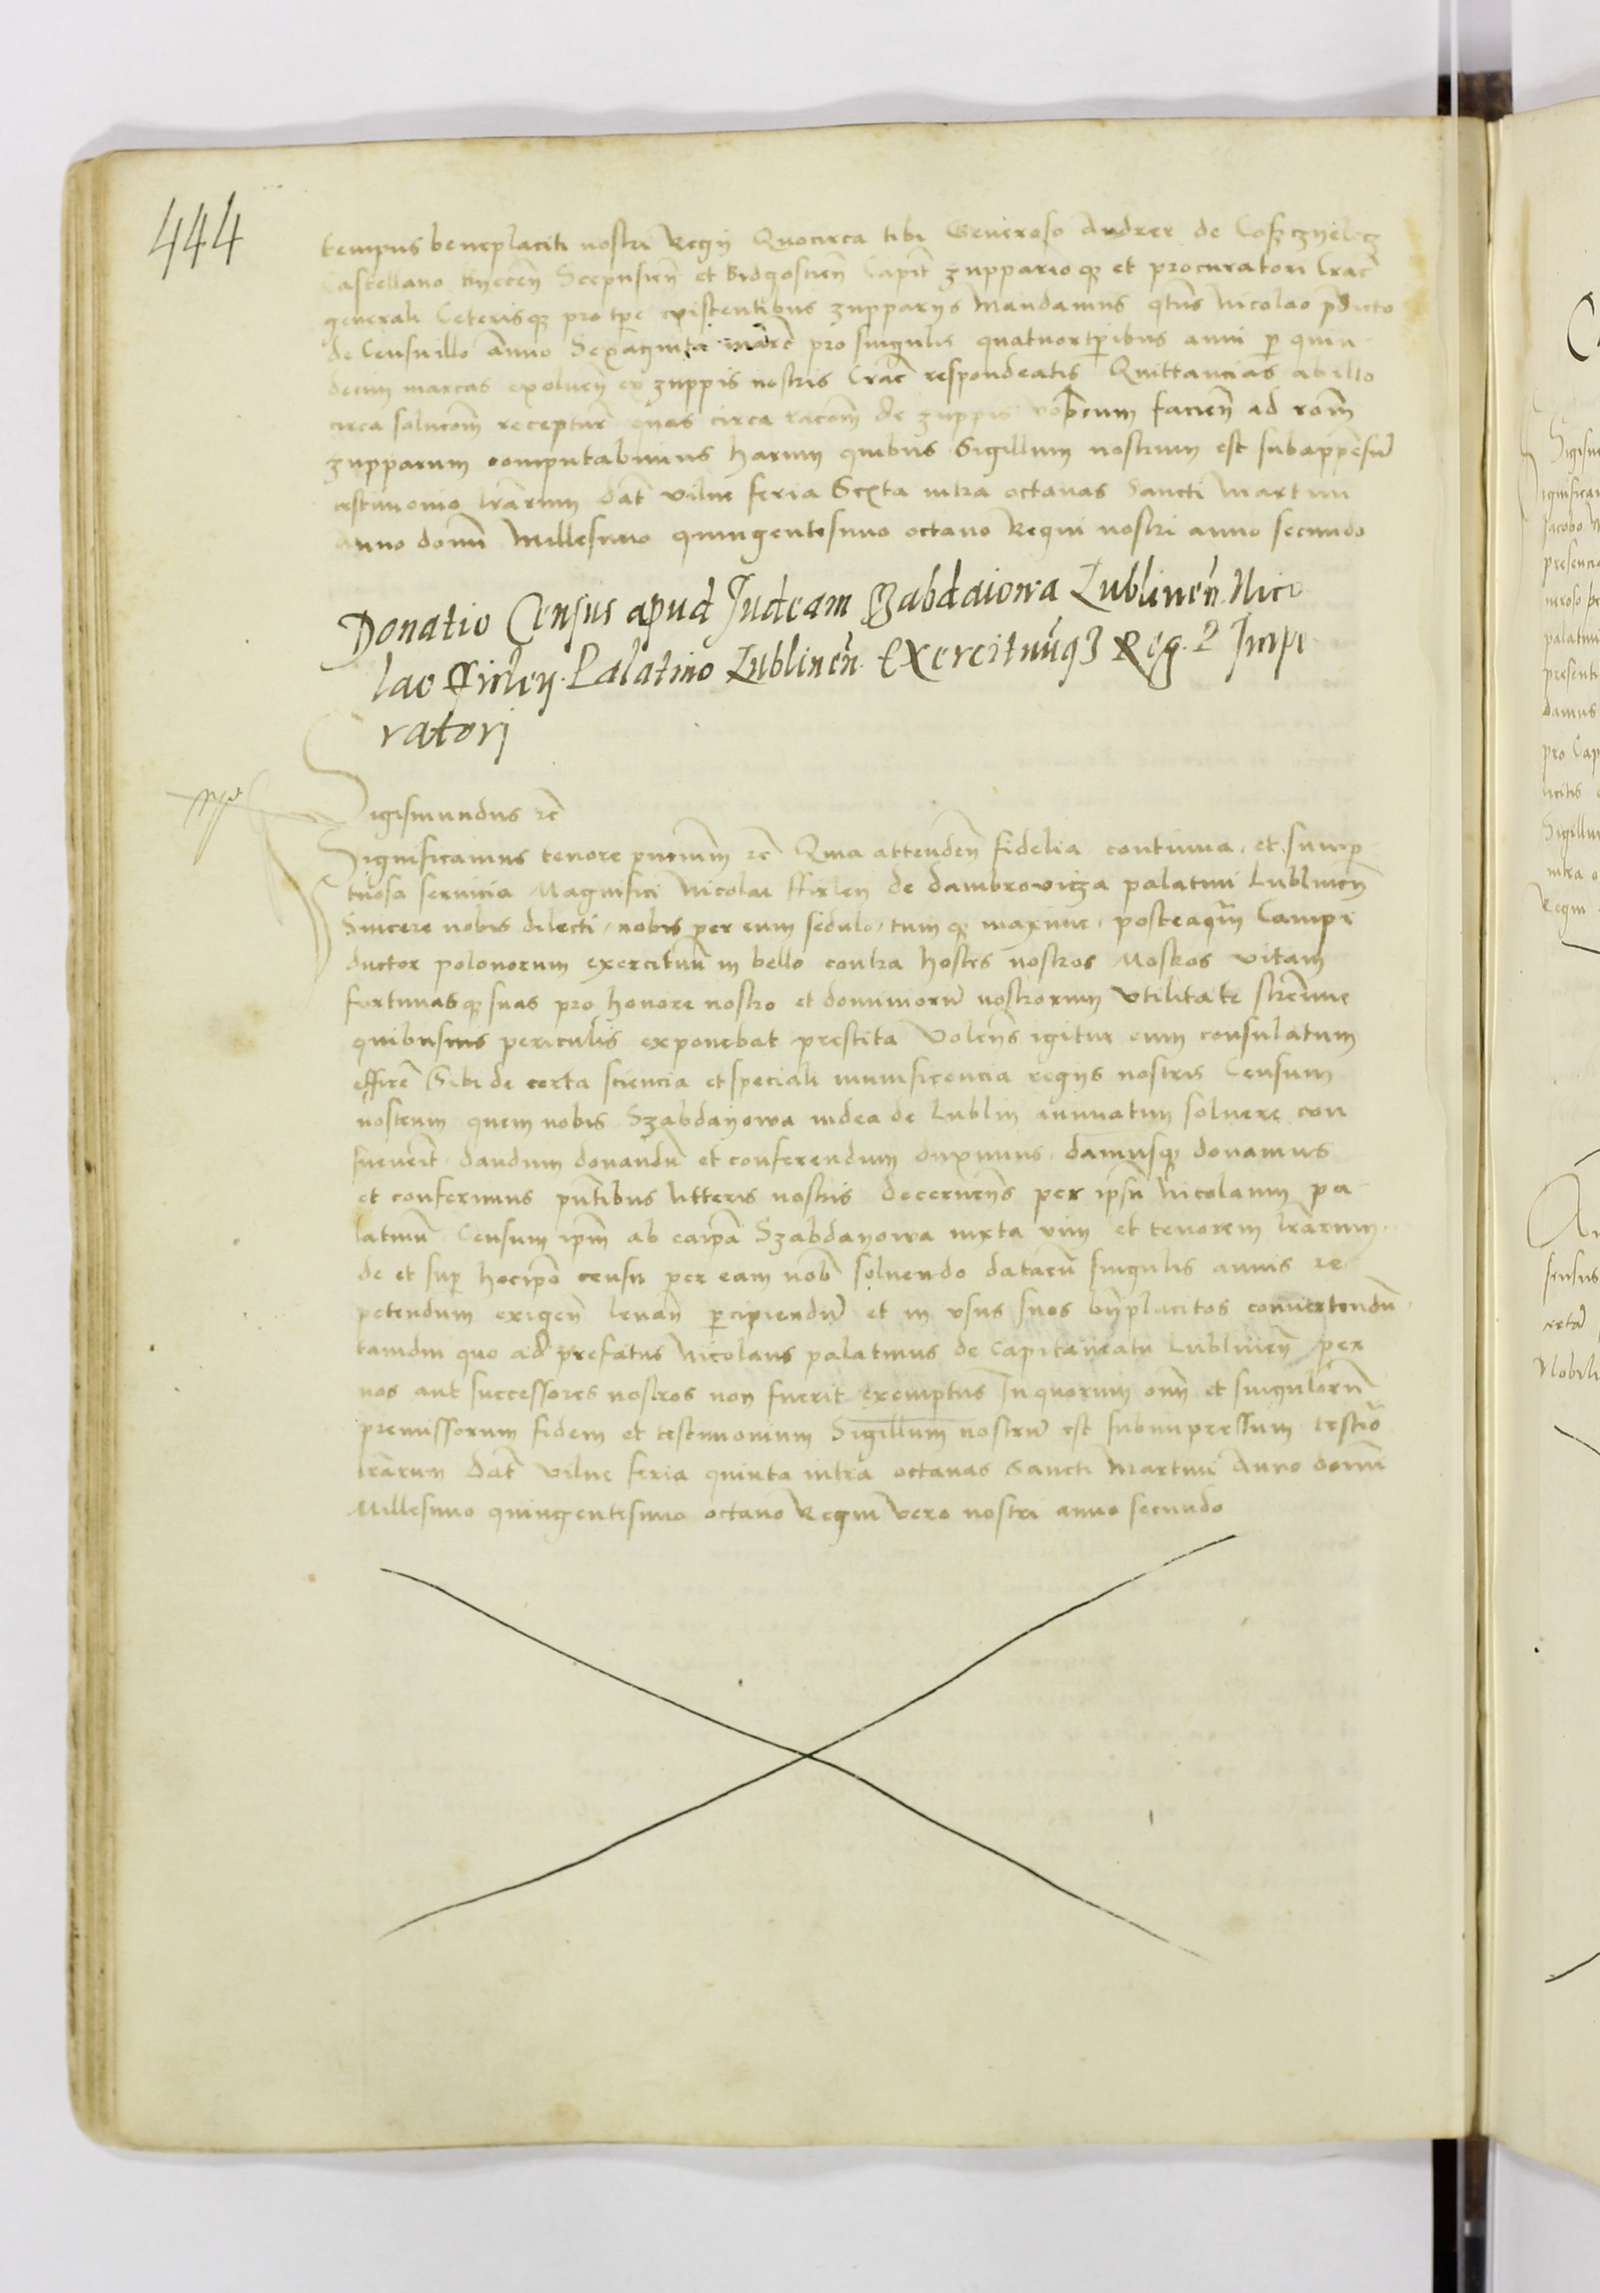 444
tempus beneplaciti nostri Regij Quocirca tibi Generoso Andree de Cosczyelecz
Castellano Scepusien̄ et Bidgostien̄ Capit̄ zupparioq et procuratori Crac̄
generali Ceterisq pro tp̄e existentibus zupparijs Mandamus qt̄us Nicolao p̄dicto
de Censu illo Anno Sexaginta marc̄ pro singulis quatuortp̄ibus anni p quin
decim marcas exoluen̄ ex zuppis nostris Crac̄ respondeatis Quittancias ab illo
circa soluc̄om̄ receptur̄ quas circa rac̄om̄ de zuppis vobcum facien̄ ad rac̄om̄
zupparum computabimus harum quibus Sigillum nostrum est subappensu̅
testimonio lr̄arum Dat̄ vilne feria Sexta intra octauas Sancti Martini
Anno domi̅ Millesimo quingentesimo octauo Regni nostri anno secundo
Donatio Census apud Judeam Szabdaiowa Lublinen̄ Nico
lao ffirley Palatino Lublinen̄. Exercituu̅q3 Reg. P Impe
ratori
Sigismundus rc̄
Significamus tenore p̄ncium rc̄ Quia attenden̄ fidelia continua et sump
tuosa seruicia Magnifici Nicolai ffirlej de Dambrovicza palatini Lublinen̄
Sincere nobis dilecti, nobis per eum sedulo, tum q maxime, posteaqm̄ Campi
ductor polonorum exercituu̅ in bello contra hostes nostros Moskos vitam
fortunasq suas pro honore nostro et dominioru̅ nostrorum vtilitate strenue
quibusuis periculis exponebat prestita Volen̄s igitur eum consulatum
effice̅ Sibi de certa sciencia et speciali munificencia regijs nostris Censum
nostrum quem nobis Szabdayowa iudea de Lublin annuatim soluere con
sueuerit dandum donandu̅ et conferendum duximus, damusq donamus
et conferimus pn̄tibus litteris nostris decernen̄s per ipsu̅ Nicolaum pa
latinu̅ Censum ipm̄ ab eaip̄a Szabdayowa iuxta vim et tenorem lr̄arum
de et sup hocip̄o censu per eam nob̄ soluendo dataru̅ singulis annis re
petendum exigen̄ leuan̄ percipiendu̅ et in vsus suos bn̄placitos conuertendu̅
tamdiu quo ad prefatus Nicolaus palatinus de Capitaneatu Lublinien̄ per
nos aut successores nostros non fuerit exemptus In quorum om̄ et singuloru̅
premissorum fidem et testimonium Sigillum nostru̅ est subimpressum testio̅
lr̄arum Dat̄ vilne feria quinta intra octauas Sancti Martini Anno domi̅
Millesimo quingentesimo octauo Regni vero nostri anno secundo